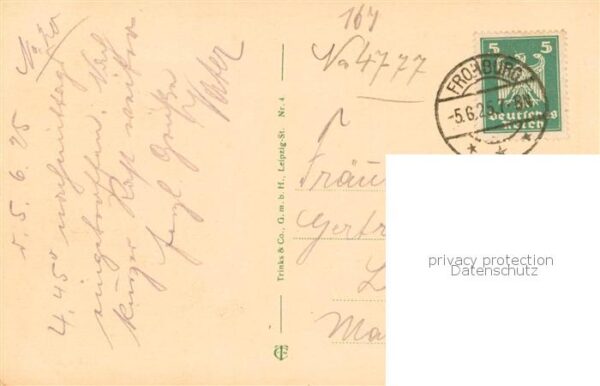 d. 5. 6. 25
4.45° nachmittags
eingetroffen. Nach
kurzer Rast weiter
herzl. Grüße
Vater
Trinks & Co., G. m. b. H., Leipzig-St. Nr. 4.
164
No 4777
5 5
Deutsches
Reich
FROHBURG
-5.6.25.7-8N
Fräu
Gertr
L
Ma
privacy protection
Datenschutz